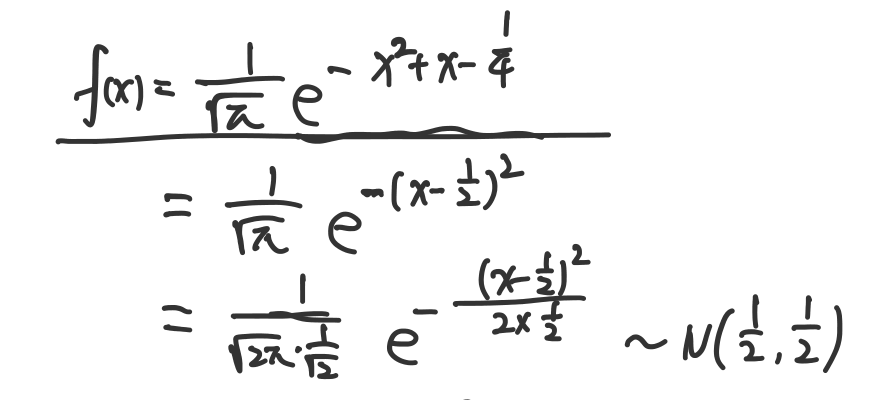 f(x) = \frac{1}{\sqrt{\pi}} e^{-x^2+x-\frac{1}{4}}
= \frac{1}{\sqrt{\pi}} e^{-(x-\frac{1}{2})^2}
= \frac{1}{\sqrt{2\pi} \cdot \frac{1}{\sqrt{2}}} e^{-\frac{(x-\frac{1}{2})^2}{2 \times \frac{1}{2}}} \sim N(\frac{1}{2}, \frac{1}{2})